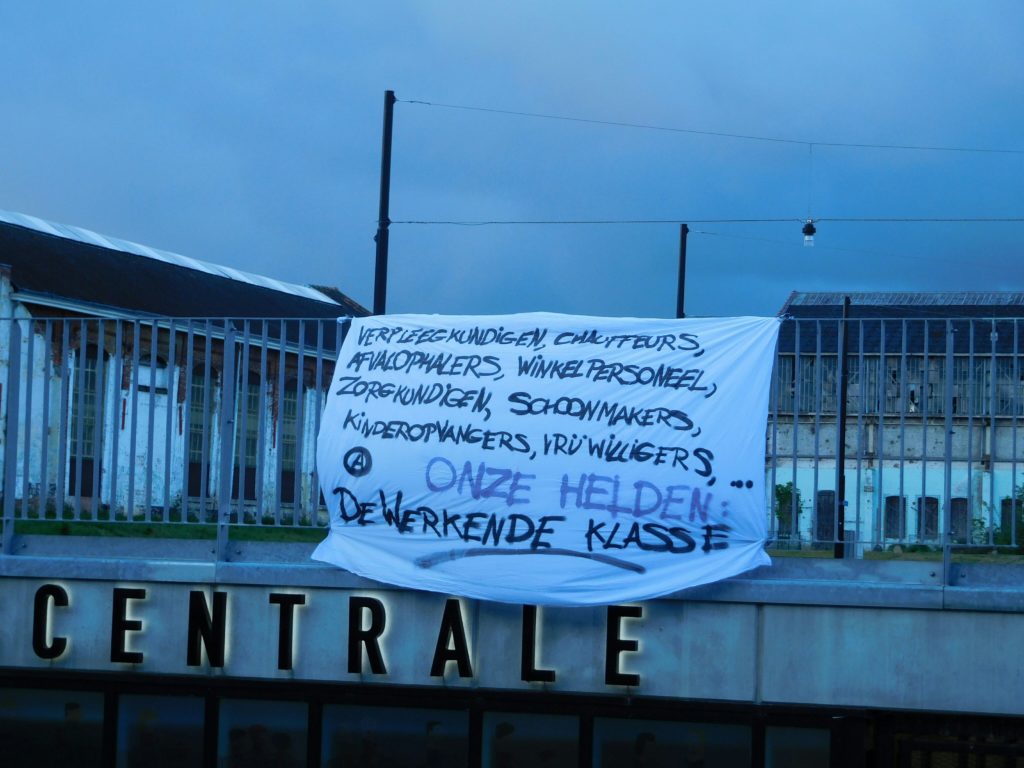 VERPLEEGKUNDIGEN, CHAUFFEURS,
AFVALOPHALERS, WINKELPERSONEEL,
ZORGKUNDIGEN, SCHOONMAKERS,
KINDEROPVANGERS, VRIJWILLIGERS, ...
A ONZE HELDEN:
DE WERKENDE KLASSE
CENTRALE